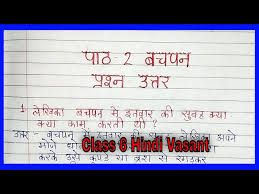 पाठ 2 बचपन
प्रश्न उत्तर
1 लेखिका बचपन में इतवार की सुबह क्या
क्या काम करती थी ?
उत्तर - बचपन में इतवार की सुबह लेखिका अपने
मोजे
Class 6 Hindi Vasant
करके उसे कपड़े या ब्रश से रगड़कर